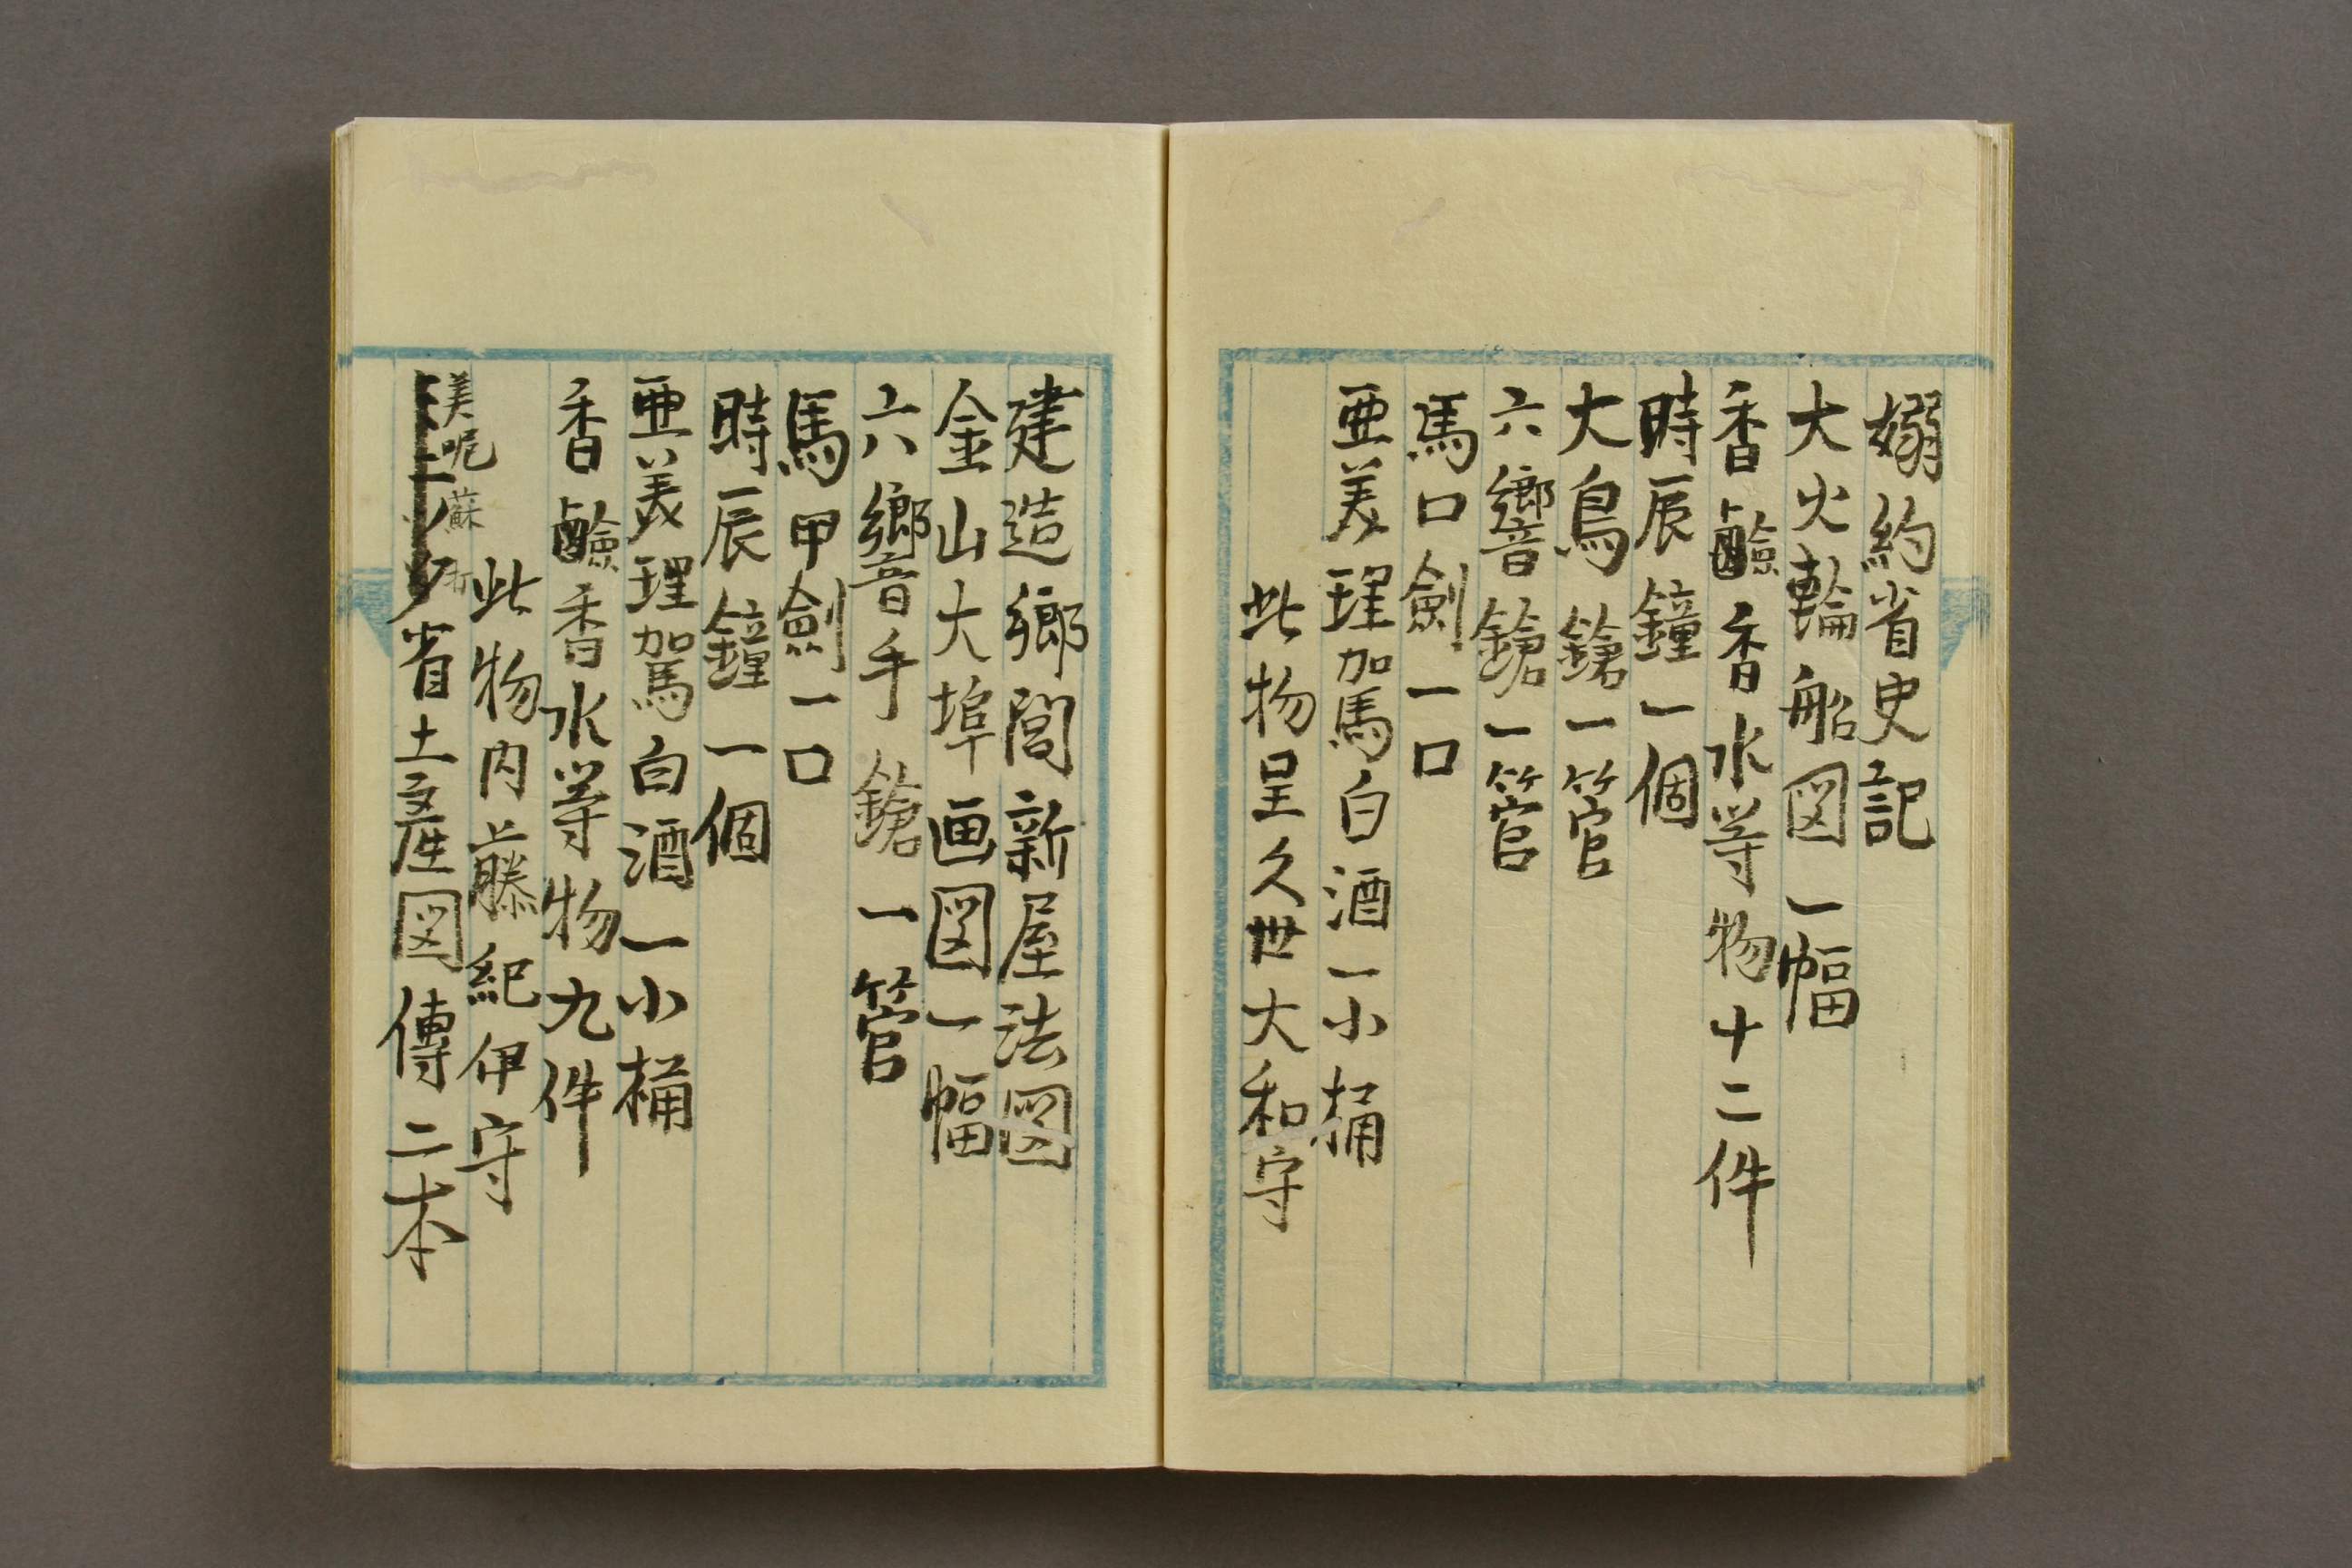 嫋約省史記
大火輪船図一幅
香鹼香水等物十二件
時辰鐘一個
大鳥鎗一管
六響鎗一管
馬口劍一口
亜美理駕白酒一小桶
此物呈久世大和守
建造鄉閭新屋法図
金山大埠画図一幅
六響手鎗一管
馬甲劍一口
時辰鐘一個
亜美理駕白酒一小桶
香鹼香水等物九件
此物内藤紀伊守
美呢蘇
省土産図傳二本